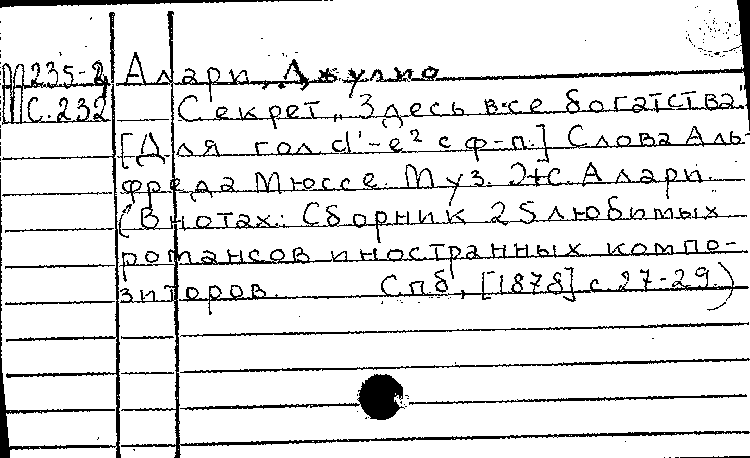 М235-2 Алари, Джулио
С.232 Секрет „Здесь все богатства."
[Для гол d'-e² с ф-п.] Слова Аль-
фреда Мюссе. Муз. Дж. Алари.
(В нотах: Сборник 25 любимых
романсов иностранных компо-
зиторов. Спб, [1878] с. 27-29.)